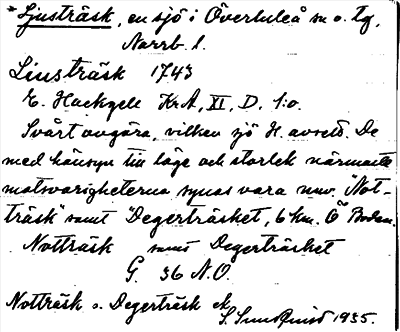 * Ljusträsk, en sjö i Överluleå sn o. tg,
Norrb. l.
Liusträsk 1743
E. Hackzell KrA, XI, D. 1:o.
Svårt avgöra, vilken sjö H. avsett. De
med hänsyn till läge och storlek närmaste
motsvarigheterna synas vara nuv. "Not-
träsk" samt "Degerträsket, 6 km. Ö Boden.
Notträsk samt Degerträsket
G. 36 N.O.
Notträsk o. Degerträsk ek
S. Sundqvist 1935.